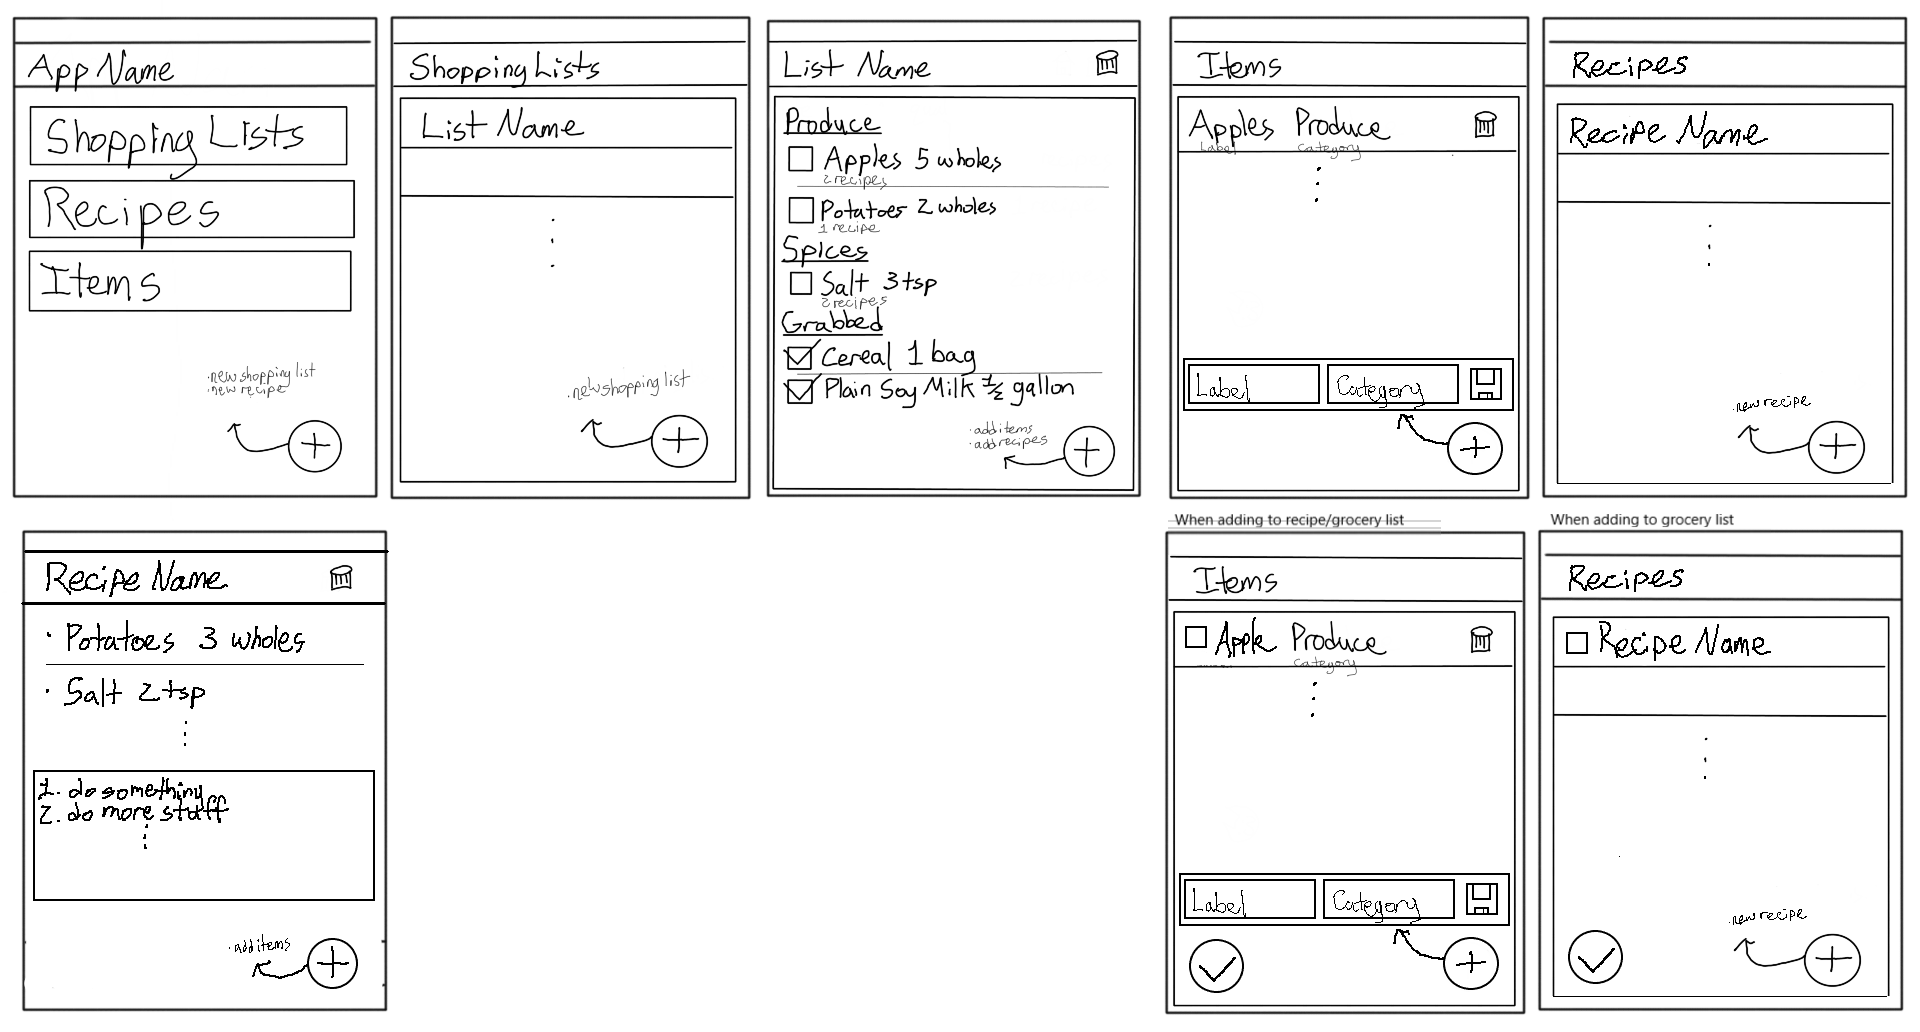 App Name
Shopping Lists
Recipes
Items
.new shopping list
.new recipe
Shopping Lists
List Name
.new shopping list
List Name
Produce
Apples 5 wholes
2 recipes
Potatoes 2 wholes
1 recipe
Spices
Salt 3 tsp
2 recipes
Grabbed
Cereal 1 bag
Plain Soy Milk 1/2 gallon
.add items
.add recipes
Items
Apples Produce
Label category
Label Category
Recipes
Recipe Name
.new recipe
Recipe Name
· Potatoes 3 wholes
· Salt 2 tsp
1. do something
2. do more stuff
· add items
When adding to recipe/grocery list
Items
Apple Produce
category
Label Category
When adding to grocery list
Recipes
Recipe Name
.new recipe